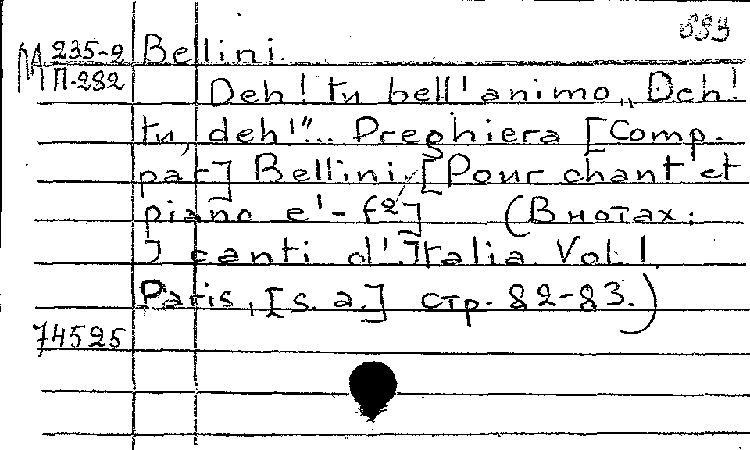 893
М 235-9 Bellini.
П-282 Deh! tu bell' animo „Deh!
tu, deh!"... Preghiera [Comp.
par] Bellini. [Pour chant et
piano e'-f²] (В нотах:
J canti d'Jtalia. Vol. I.
Paris, [s. a.] стр. 82-83.)
74525